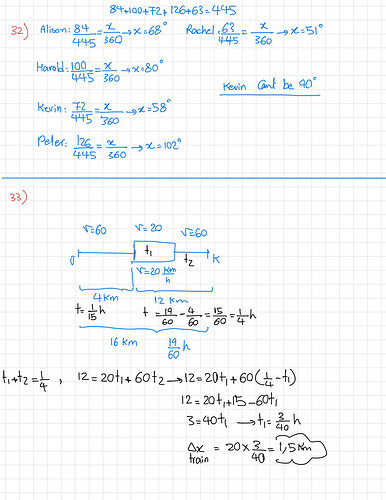 84+100+72+126+63=445
32) Alison: 84/445 = x/360 → x=68° Rachel: 63/445 = x/360 → x=51°
Harold: 100/445 = x/360 → x=80°
Kevin Cant be 90°
Kevin: 72/445 = x/360 → x=58°
Peter: 126/445 = x/360 → x=102°
33)
V=60 V=20 V=60
J t₁ t₂ K
V=20 km/h
4 km 12 km
t=1/15 h t=19/60-4/60=15/60=1/4 h
16 km 19/60 h
t₁+t₂=1/4, 12=20t₁+60t₂ → 12=20t₁+60(1/4-t₁)
12=20t₁+15-60t₁
3=40t₁ → t₁=3/40 h
Δx train = 20×3/40=1,5 km